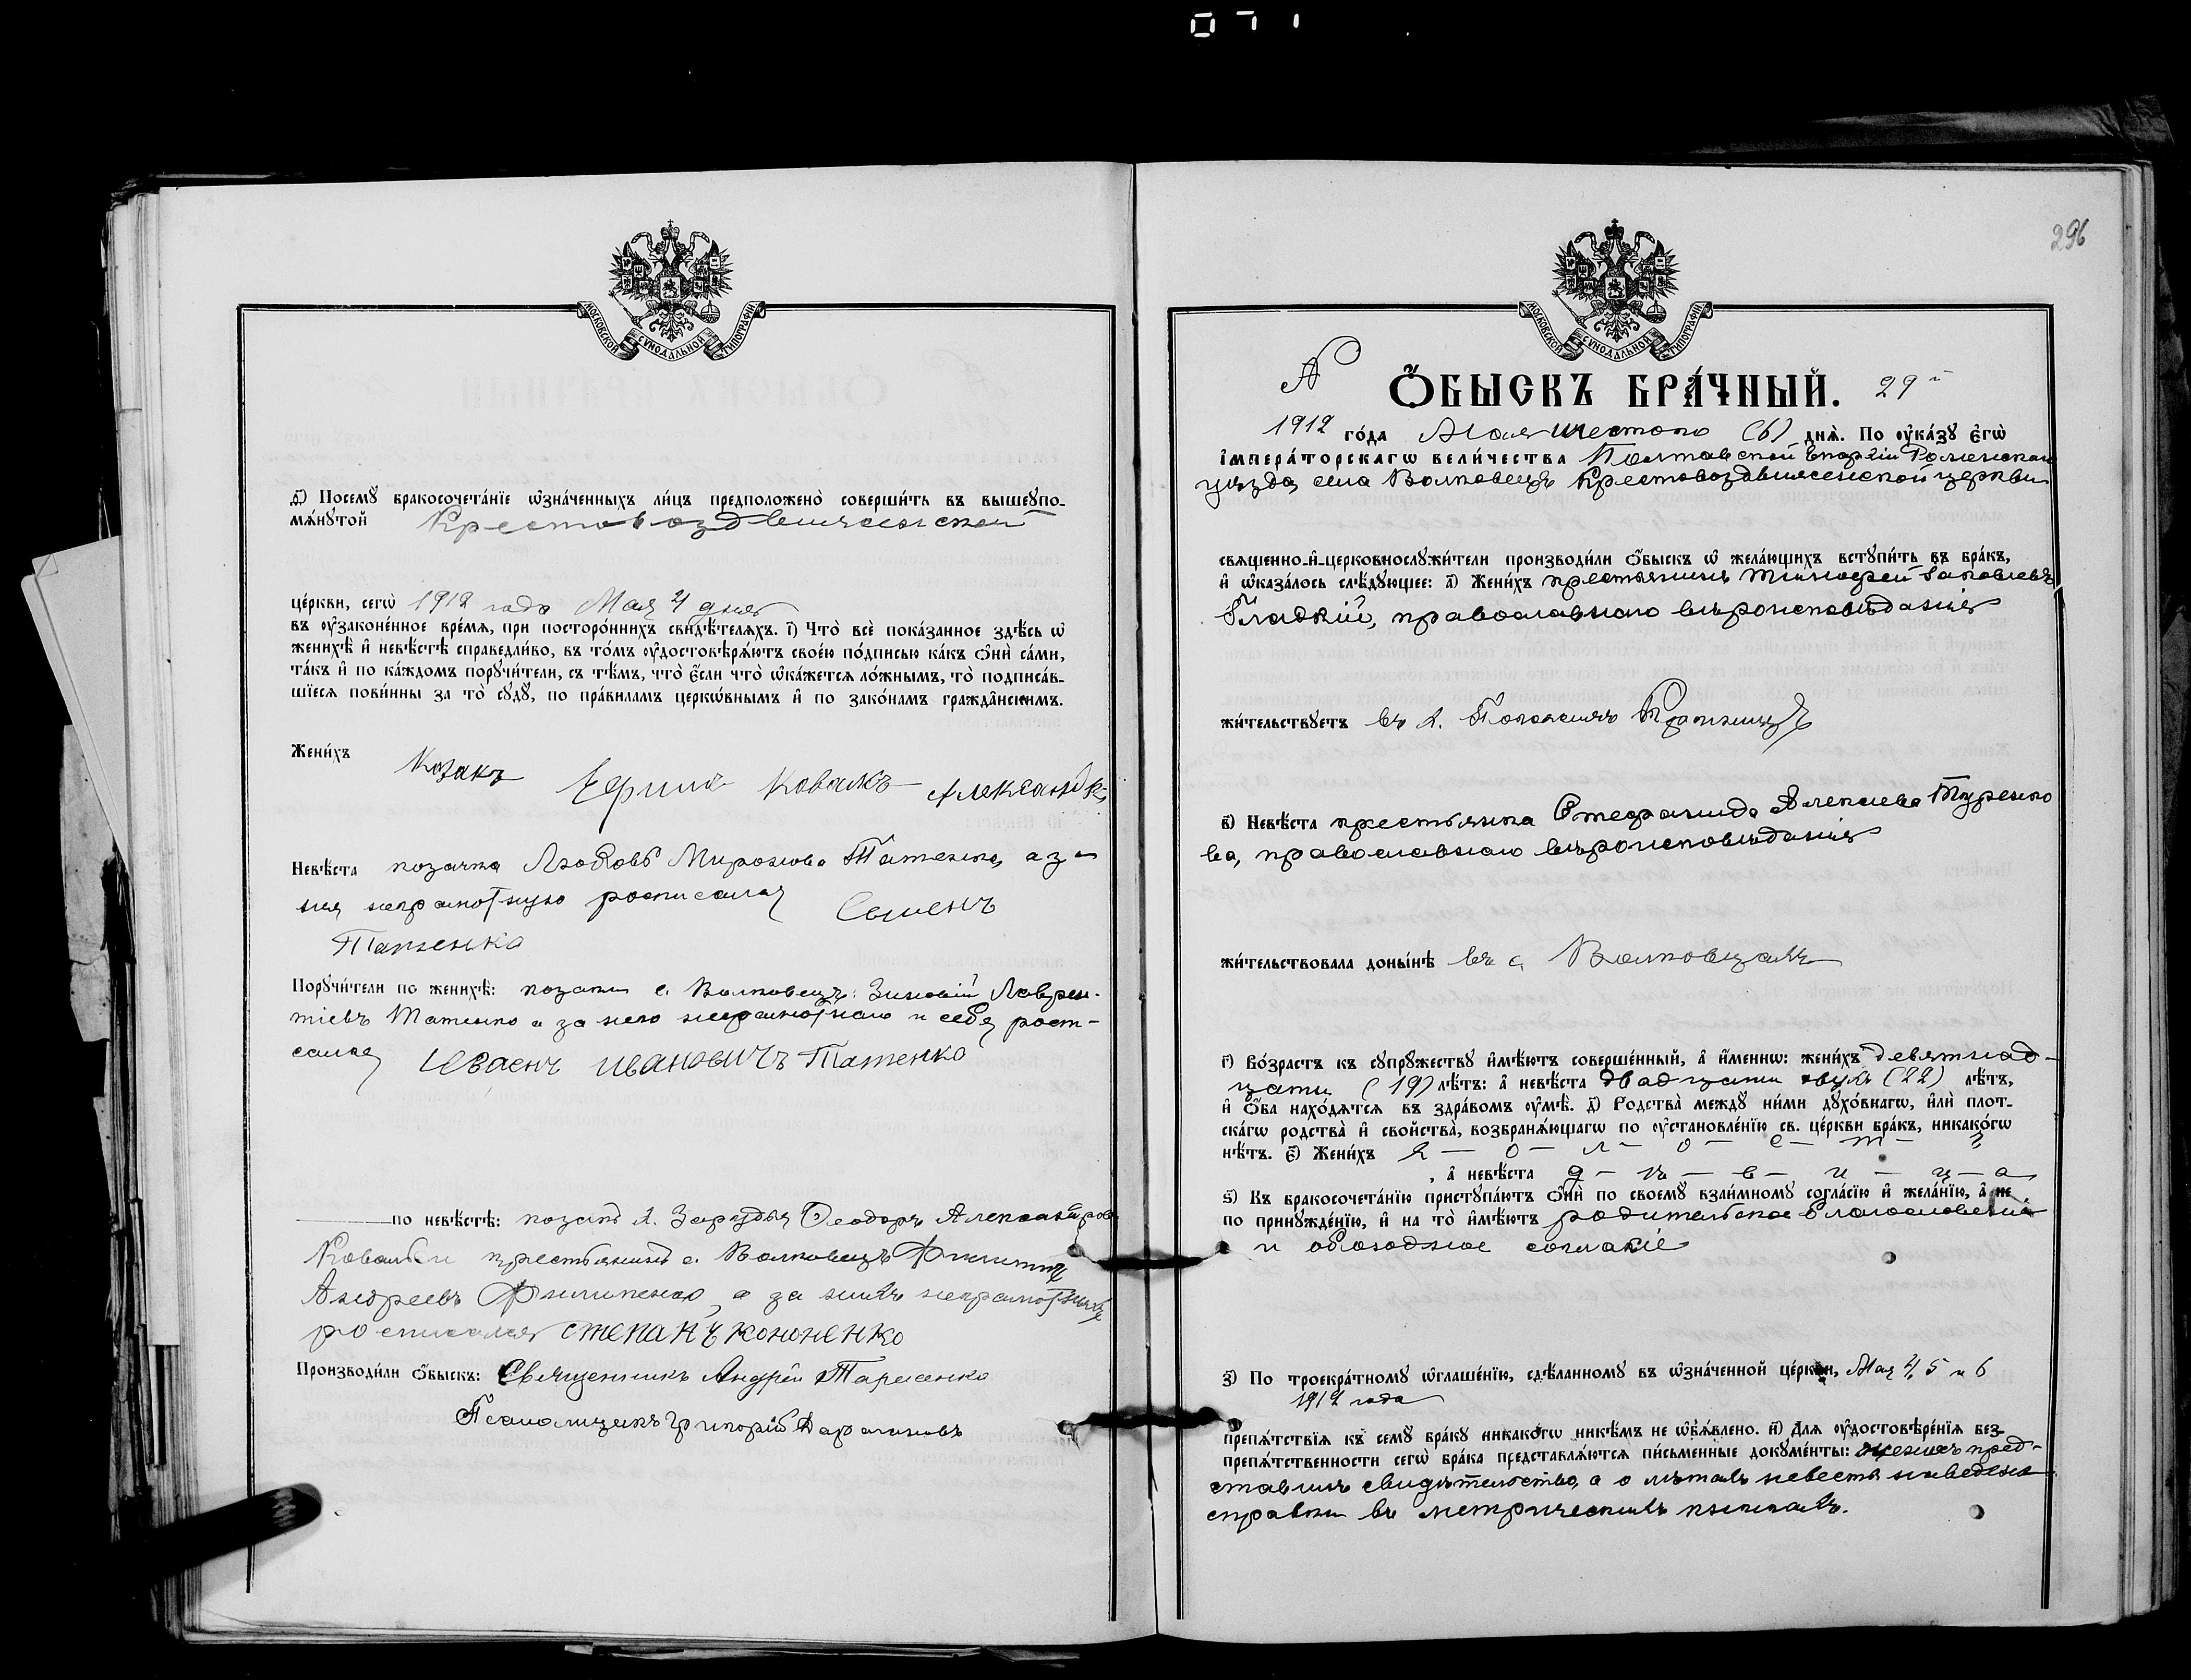 071
МОСКОВСКОЙ СѴНОДАЛЬНОЙ ТИПОГРАФІИ
ѳ҃) Посемꙋ̀ бракосочета́нїе ѡ҆зна́ченныхъ ли́цъ предположено̀ соверши́ть въ вышеꙋпо-
мѧ́нꙋтой Крестовоздвиженской
це́ркви, сегѡ̀ 1912 года Мая 4 дня
въ ᲂу҆законе́нное вре́мѧ, при посторо́ннихъ свидѣ́телѧхъ. і҃) Что̀ всѐ пока́занное здѣ́сь ѡ҆
женихѣ̀ и҆ невѣ́стѣ справедли́во, въ то́мъ ᲂу҆достовѣрѧ́ютъ свое́ю по́дписью ка́къ ѻ҆нѝ са́ми,
та́къ и҆ по ка́ждомъ порꙋчи́тели, съ тѣ́мъ, что̀ є҆́сли что̀ ѡ҆ка́жетсѧ ло́жнымъ, то̀ подписа́в-
шїесѧ пови́нны за то̀ сꙋдꙋ̀, по пра́виламъ церкѡ́внымъ и҆ по зако́намъ гражда̑нскимъ.
Жени́хъ Козакъ Ефимъ Ковалъ Александр
Невѣ́ста козачка Любовь Миронова Татенко, а за
нея неграмотную росписался Семенъ
Татенко
Порꙋчи́тели по женихѣ̀: козаки с. Волковецъ: Зиновій Лаврен-
тіевъ Татенко а за него неграмотнаго и себя роспи-
сался Иванъ Ивановичъ Татенко
по невѣ́стѣ: козакъ х. Зарудья Ѳеодоръ Александров
Коваль и крестьянинъ с. Волковецъ Филиппъ
Андреевъ Филипенко, а за нихъ неграмотныхъ
росписался Степанъ Кононенко
Производи́ли ѻ҆́быскъ: Священникъ Андрей Тарасенко
Псаломщикъ Григорій
296
МОСКОВСКОЙ СѴНОДАЛЬНОЙ ТИПОГРАФІИ
Ѻ҆́БЫСКЪ БРА́ЧНЫЙ. 29й
1912 го́да Мая шестого (6) днѧ̀. По ᲂу҆ка́зꙋ є҆гѡ̀
і҆мпера́торскагѡ вели́чества Полтавской Епархіи Роменскаго
уѣзда, села Волковецъ Крестовоздвиженской церкви
свѧщенно-и҆-церковнослꙋжи́тели производи́ли ѻ҆́быскъ ѡ҆ жела́ющихъ встꙋпи́ть въ бра́къ,
и҆ ѡ҆каза́лось слѣ́дꙋющее: а҃) Жени́хъ крестьянинъ Тимофей Іаковлевъ
Гладкій, православнаго вѣроисповѣданія
жи́тельствꙋетъ въ х.
в҃) Невѣ́ста крестьянка Стефанида Алексіева Туренко
ва, православнаго вѣроисповѣданія
жи́тельствовала доны́нѣ въ с. Волковцахъ
г҃) Во́зрастъ къ сꙋпрꙋ́жествꙋ и҆мѣ́ютъ соверше́нный, а҆ и҆́меннѡ: жени́хъ девятнад-
цати (19) лѣ́тъ: а҆ невѣ́ста двадцати двухъ (22) лѣ́тъ,
и҆ ѻ҆́ба нахо́дѧтсѧ въ здра́вомъ ᲂу҆мѣ̀. д҃) Родства̀ междꙋ̀ ни́ми дꙋхо́внагѡ, и҆лѝ плот-
ска́гѡ родства̀ и҆ сво́йства̀, возбранѧ́ющагѡ по ᲂу҆становле́нїю св. це́ркви бра́къ, никако́гѡ
нѣ́тъ. є҃) Жени́хъ х — о — л — о — с — т — ъ
, а҆ невѣ́ста д — ѣ — в — и — ц — а
ѕ҃) Къ бракосочета́нїю пристꙋпа́ютъ ѻ҆нѝ по своемꙋ̀ взаи́мномꙋ согла́сїю и҆ жела́нїю, а҆ не
по принꙋжде́нїю, и҆ на то̀ и҆мѣ́ютъ родительское благословеніе
и обоюдное согласіе
з҃) По троекра́тномꙋ ѡ҆глаше́нїю, сдѣ́ланномꙋ въ ѡ҆зна́ченной це́ркви, Мая 4, 5 и 6
1912 года
препѧ́тствїѧ къ семꙋ̀ бра́кꙋ никако́гѡ никѣ́мъ не ѡ҆б̾ѧ́влено. и҃) Длѧ̀ ᲂу҆достовѣре́нїѧ без-
препѧ́тственности сегѡ̀ бра́ка представлѧ́ютсѧ пи́сьменные докꙋме́нты: женихъ пред-
ставилъ свидѣтельство, а о лѣтахъ невесты наведены
справки въ метрическихъ книгахъ.